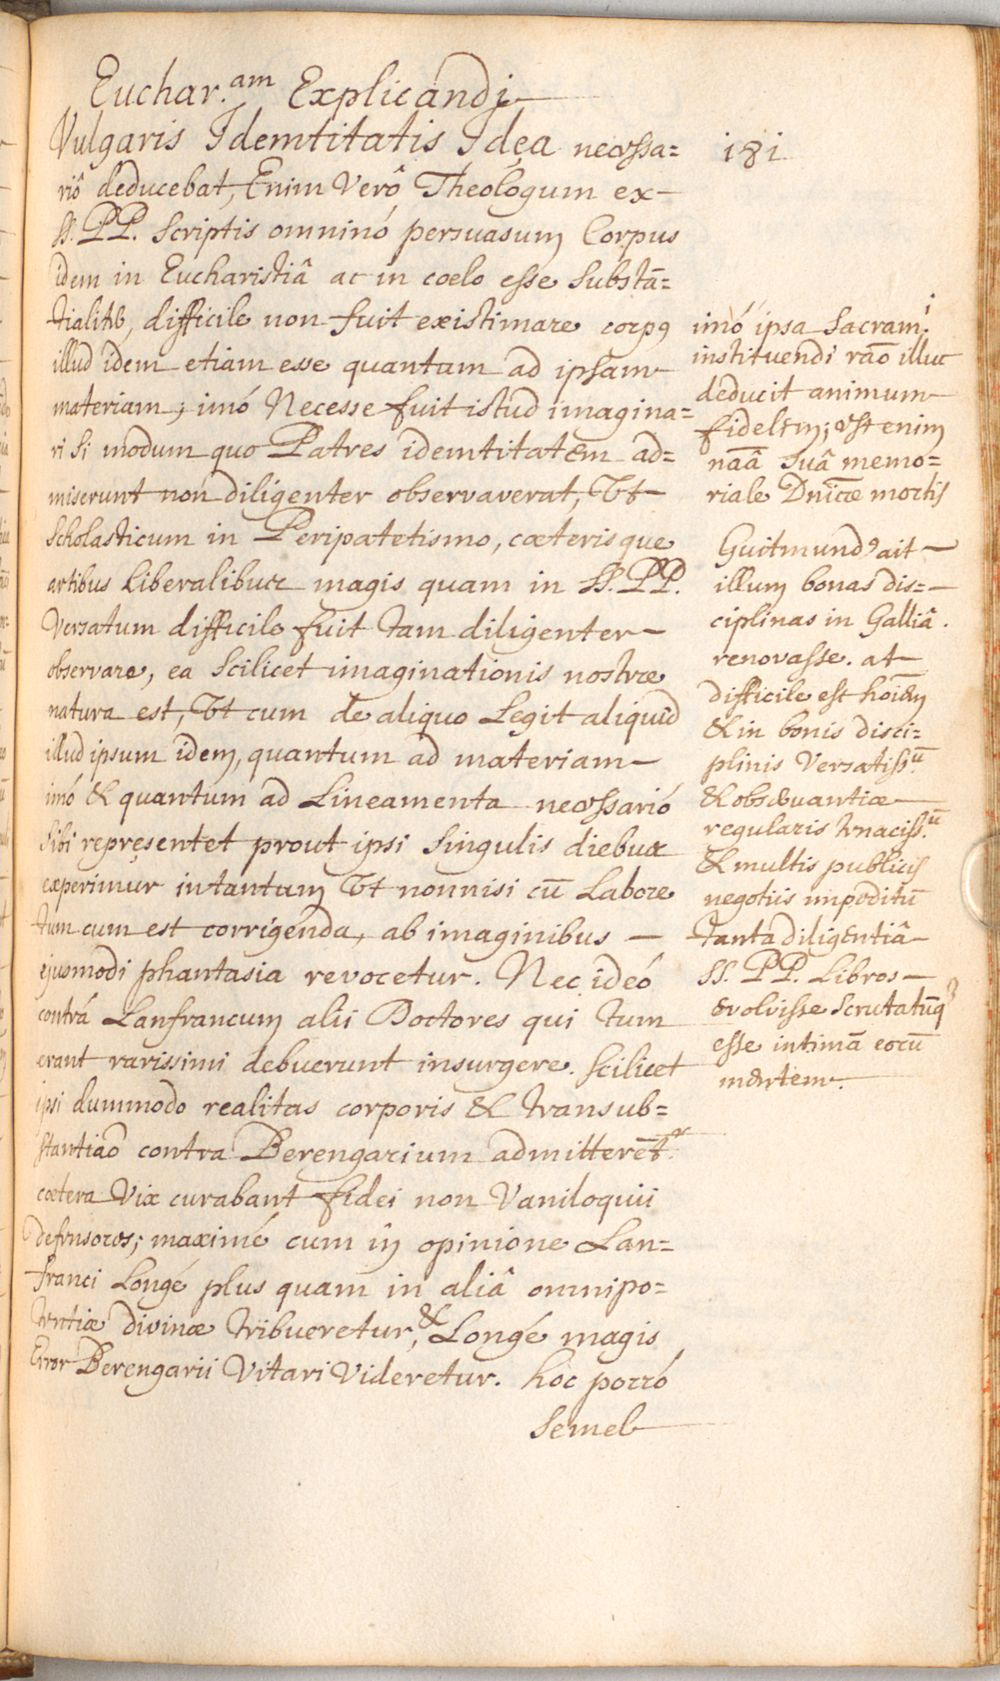 Euchar.am Explicandi
Vulgaris Idemtitatis Idea necessa=
riô deducebat, Enim Verô Theologum ex
SS. PP. Scriptis omninó persuasum Corpus
idem in Eucharistiâ ac in coelo esse substā=
tialiter, difficile non fuit existimare corpꝰ
illud idem etiam esse quantum ad ipsam
materiam; imó Necesse fuit istud imagina=
ri si modum quo Patres idemtitatem ad=
miserunt non diligenter observaverat, Ut
Scholasticum in Peripatetismo, cæterisque
artibus Liberalibus magis quam in SS. PP.
Versatum difficile fuit tam diligenter
observare, ea scilicet imaginationis nostræ
natura est, Ut cum de aliquo Legit aliquid
illud ipsum idem, quantum ad materiam
imó & quantum ad Lineamenta necessarió
Sibi repręsentet prout ipsi Singulis diebus
experimur intantum Ut nonnisi cū Labore
tum cum est corrigenda, ab imaginibus
ejusmodi phantasia revocetur. Nec ideó
contrá Lanfrancum alii Doctores qui tum
erant rarissimi debuerunt insurgere. Scilicet
ipsi dummodo realitas corporis & transub=
stantiaō contra Berengarium admitterēt.r
cætera Vix curabant fidei non Vaniloquii
defensores; maximé cum in opinione Lan=
franci Longé plus quam in aliâ omnipo=
tentiæ divinæ tribueretur, & Longé magis
Error Berengarii Vitari Videretur. hoc porró
Semel
181
imó ipsa Sacram.i
instituendi rāō illuc
deducit animum
fidelem; est enim
nāâ suâ memo=
riale Dnīcæ mortis
Guitmundꝰ ait
illum bonas dis=
ciplinas in Galliâ
renovasse. at
difficile est hōiēm
& in bonis disci=
plinis Versatiss.ū
& observantiæ
regularis tenaciss.ū
& multis publicis
negotiis impeditū
tanta diligentiâ
SS. PP. Libros
evolvisse scrutatūq
esse intimā eorū
mentem.